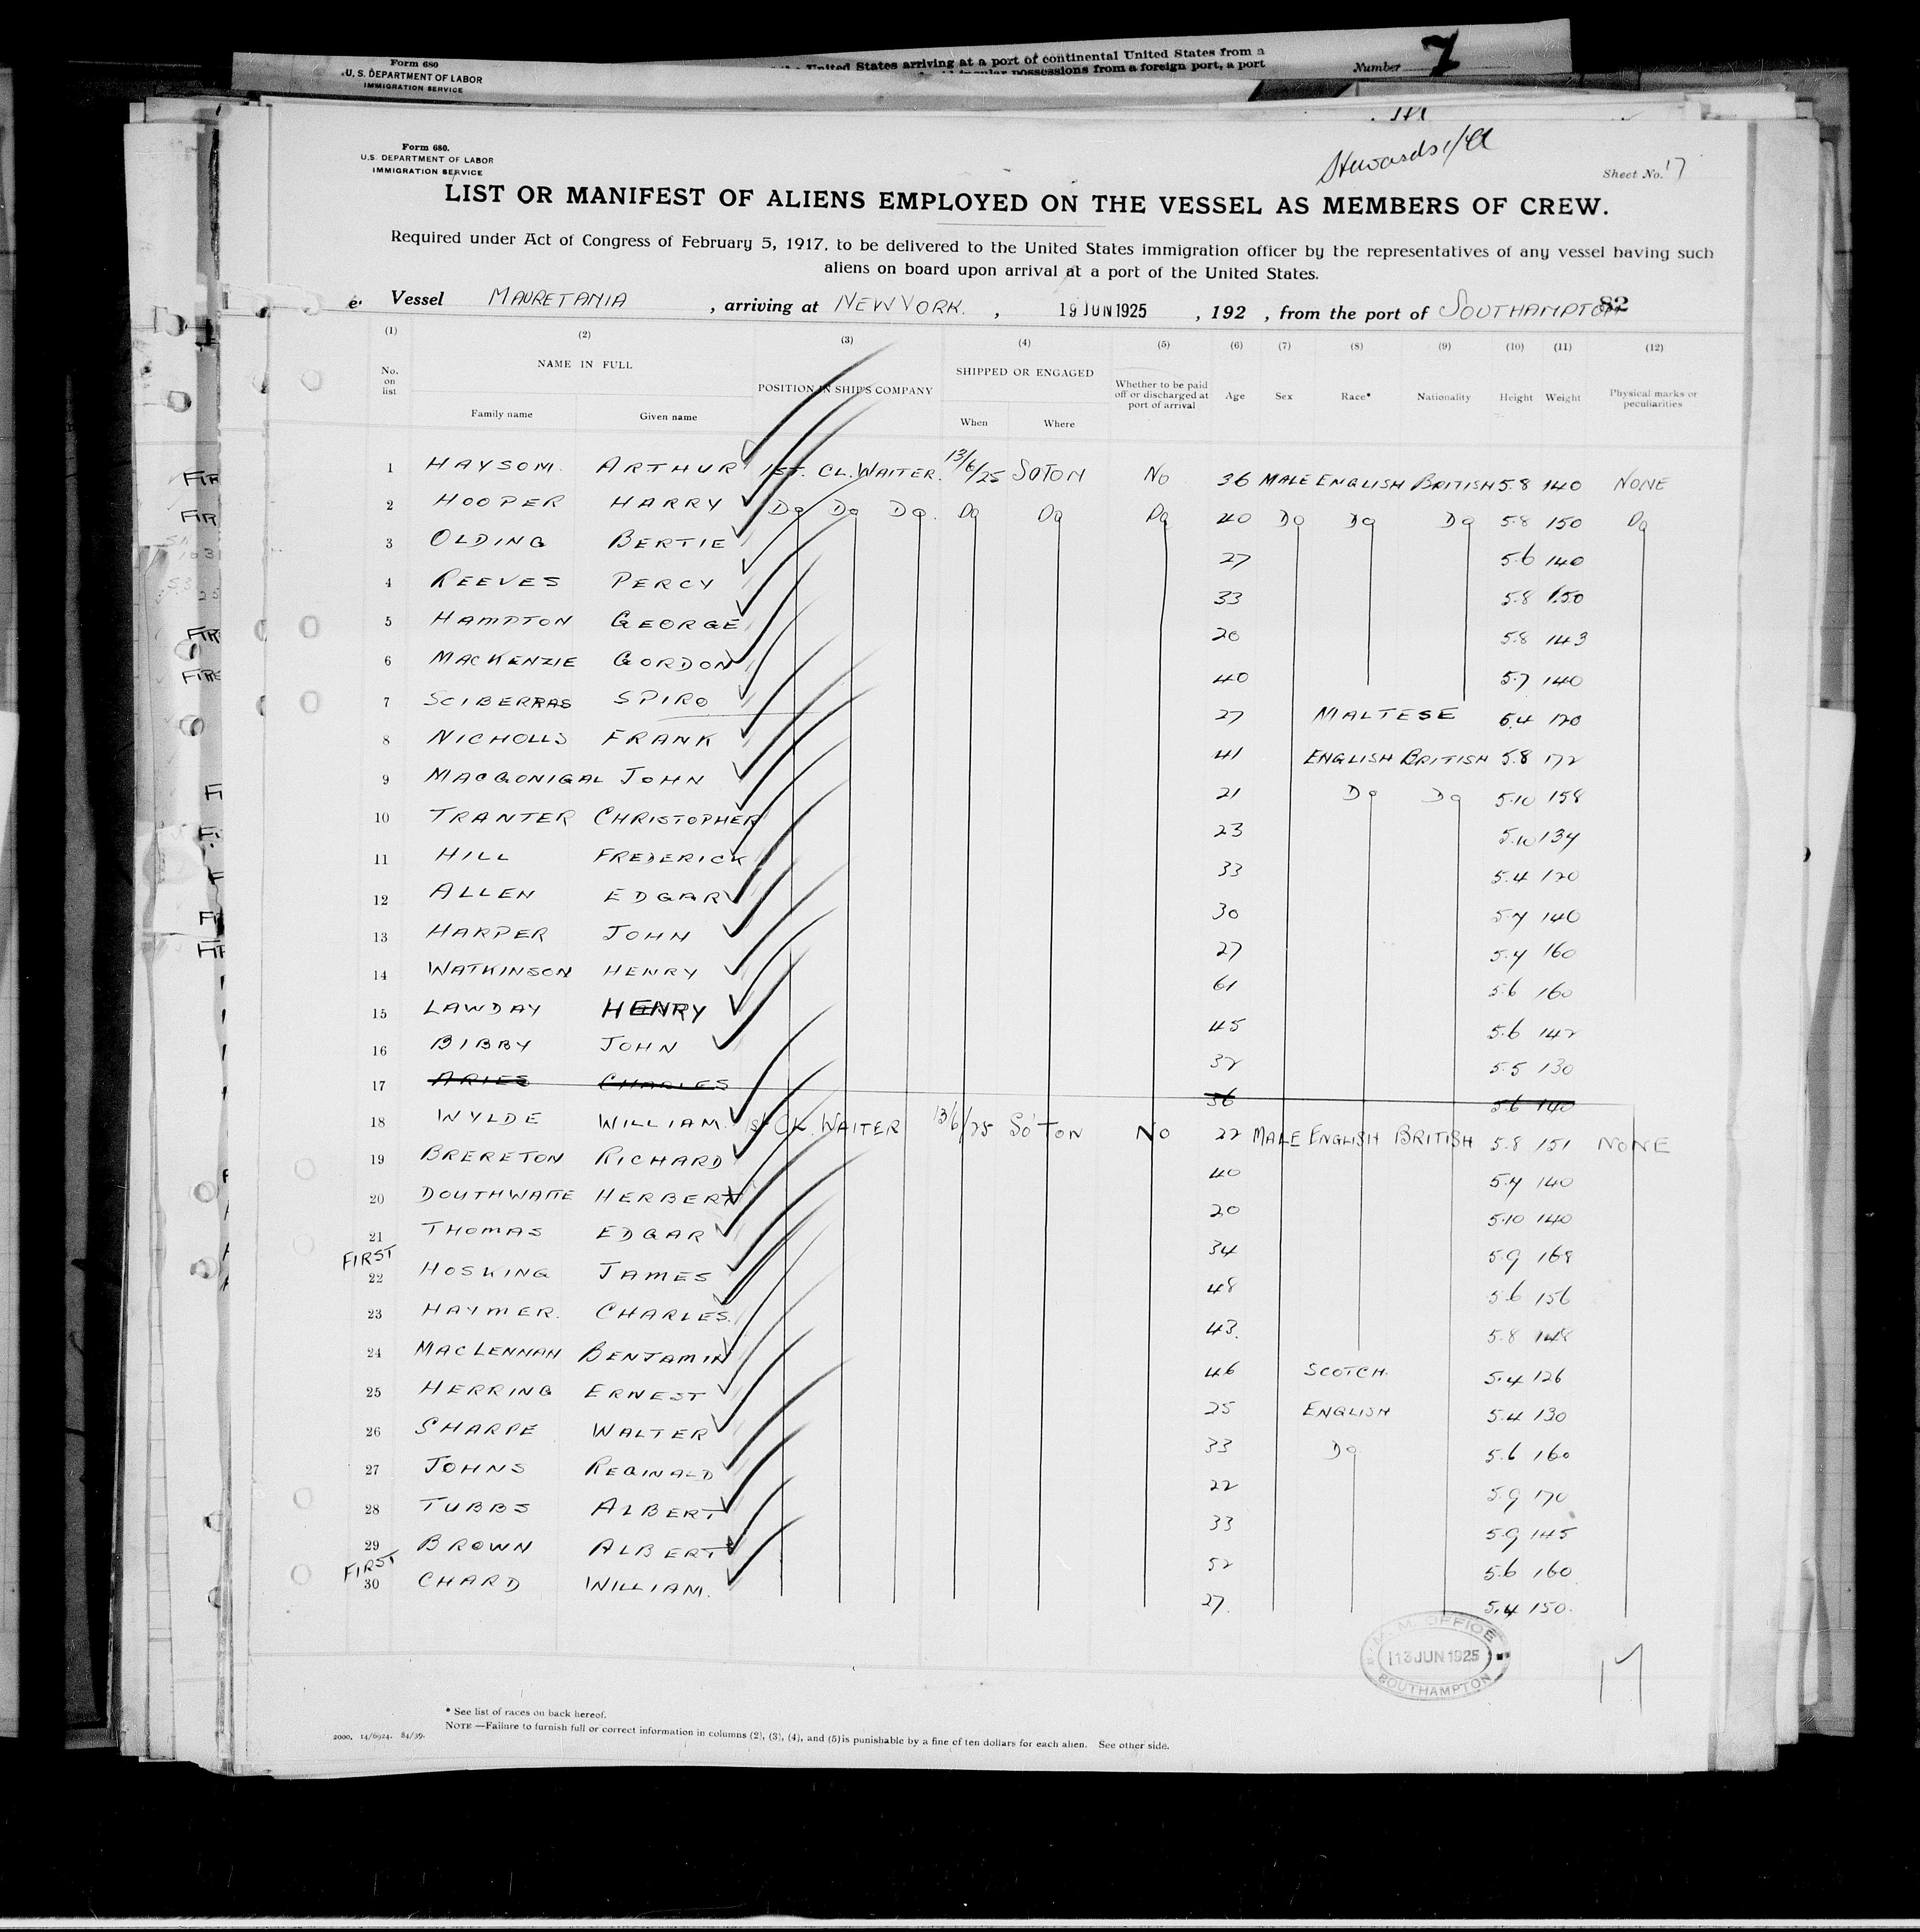 Form 680
U. S. DEPARTMENT OF LABOR
IMMIGRATION SERVICE
United States arriving at a port of continental United States from a
possessions from a foreign port, a port
Number 7
Form 680.
U.S. DEPARTMENT OF LABOR
IMMIGRATION SERVICE
Sheet No. 17
LIST OR MANIFEST OF ALIENS EMPLOYED ON THE VESSEL AS MEMBERS OF CREW.
Required under Act of Congress of February 5, 1917, to be delivered to the United States immigration officer by the representatives of any vessel having such
aliens on board upon arrival at a port of the United States.
Vessel MAURETANIA, arriving at NEW YORK., 19 JUN 1925, 192, from the port of SOUTHAMPTON 82
(1) (2) (3) (4) (5) (6) (7) (8) (9) (10) (11) (12)
No. on list NAME IN FULL Family name Given name POSITION IN SHIP'S COMPANY SHIPPED OR ENGAGED When Where Whether to be paid off or discharged at port of arrival Age Sex Race* Nationality Height Weight Physical marks or peculiarities
1 HAYSOM. ARTHUR 1ST. CL. WAITER. 13/6/25 SOTON NO 36 MALE ENGLISH BRITISH 5.8 140 NONE
2 HOOPER HARRY Do Do Do. Do Do Do 40 Do Do Do 5.8 150 Do
3 OLDING BERTIE 27 5.6 140
4 REEVES PERCY 33 5.8 150
5 HAMPTON GEORGE 20 5.8 143
6 MACKENZIE GORDON 40 5.7 140
7 SCIBERRAS SPIRO 27 MALTESE 5.4 120
8 NICHOLLS FRANK 41 ENGLISH BRITISH 5.8 172
9 MACGONIGAL JOHN 21 Do Do 5.10 158
10 TRANTER CHRISTOPHER 23 5.10 134
11 HILL FREDERICK 33 5.4 120
12 ALLEN EDGAR 30 5.7 140
13 HARPER JOHN 27 5.7 160
14 WATKINSON HENRY 61 5.6 160
15 LAWDAY HENRY 45 5.6 142
16 BIBBY JOHN 32 5.5 130
17 ARIES CHARLES 36 5.6 140
18 WYLDE WILLIAM. 1st CL. WAITER 13/6/25 SO'TON NO 22 MALE ENGLISH BRITISH 5.8 151 NONE
19 BRERETON RICHARD 40 5.7 140
20 DOUTHWAITE HERBERT 20 5.10 140
21 THOMAS EDGAR 34 5.9 168
FIRST
22 HOSKING JAMES 48 5.6 156
23 HAYMER. CHARLES. 43. 5.8 148
24 MACLENNAN BENJAMIN 46 SCOTCH. 5.4 126
25 HERRING ERNEST 25 ENGLISH 5.4 130
26 SHARPE WALTER 33 Do 5.6 160
27 JOHNS REGINALD 22 5.9 170
28 TUBBS ALBERT 33 5.9 145
29 BROWN ALBERT 52 5.6 160
FIRST
30 CHARD WILLIAM. 27. 5.4 150.
M. M. OFFICE
13 JUN 1925
SOUTHAMPTON
17
* See list of races on back hereof.
NOTE —Failure to furnish full or correct information in columns (2), (3), (4), and (5) is punishable by a fine of ten dollars for each alien. See other side.
2000. 14/6924. 84/39.